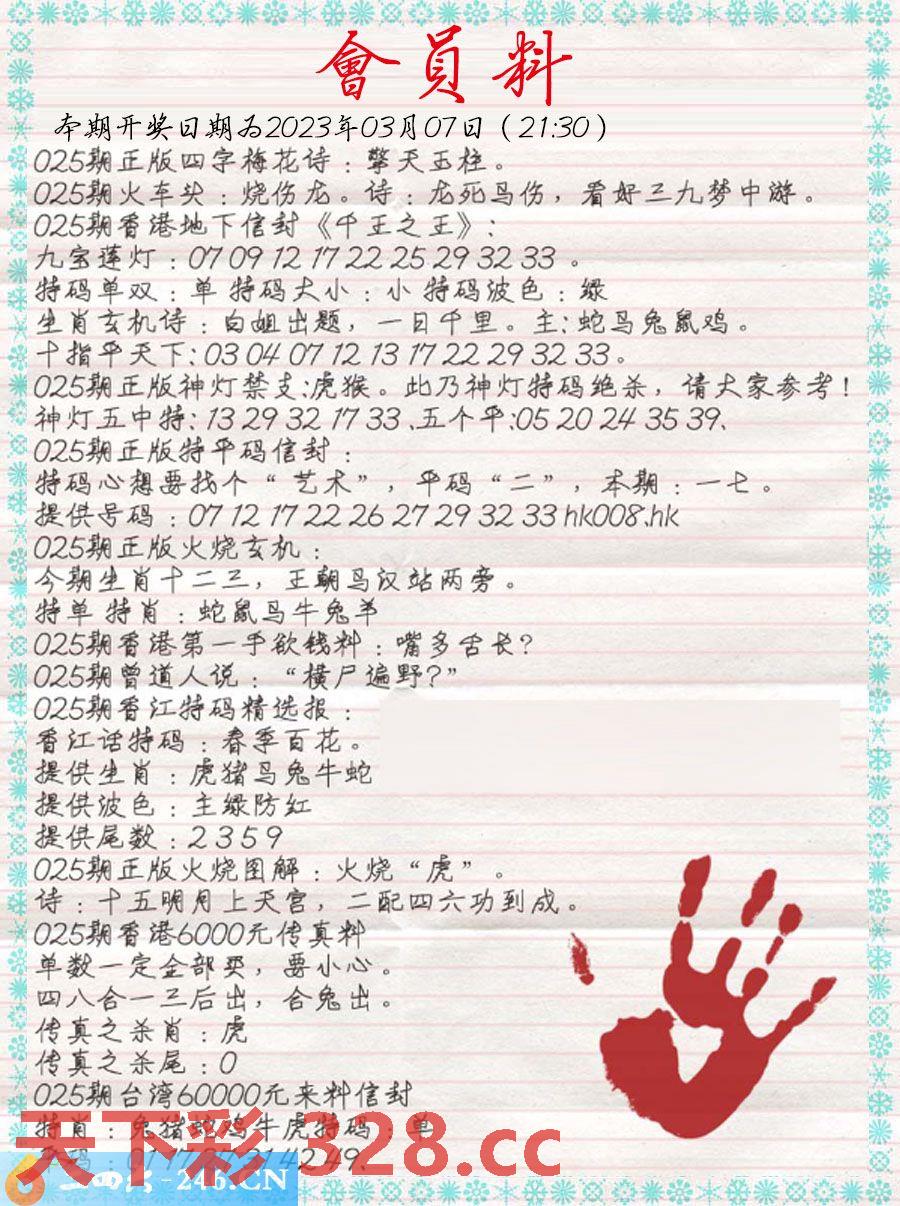 會員料
本期开奖日期为2023年03月07日（21:30）
025期正版四字梅花诗：擎天玉柱。
025期火车头：烧伤龙。诗：龙死鸟伤，看好三九梦中游。
025期香港地下信封《千王之王》:
九宝莲灯：07 09 12 17 22 25 29 32 33 。
特码单双：单 特码大小：小 特码波色：绿
生肖玄机诗：白姐出题，一日千里。主:蛇马兔鼠鸡。
十指平天下:03 04 07 12 13 17 22 29 32 33。
025期正版神灯禁支:虎猴。此乃神灯特码绝杀，请大家参考！
神灯五中特: 13 29 32 17 33 .五个平:05 20 24 35 39.
025期正版特平码信封：
特码心想要找个“艺术”，平码“二”，本期：一七。
提供号码：07 12 17 22 26 27 29 32 33 hk008.hk
025期正版火烧玄机：
今期生肖十二三，王朝马汉站两旁。
特单 特肖：蛇鼠马牛兔羊
025期香港第一手欲钱料：嘴多舌长?
025期曾道人说：“横尸遍野?”
025期香江特码精选报：
香江话特码：春季百花。
提供生肖：虎猪马兔牛蛇
提供波色：主绿防红
提供尾数：2 3 5 9
025期正版火烧图解：火烧“虎”。
诗：十五明月上天宫，二配四六功到成。
025期香港6000元传真料
单数一定全部买，要小心。
四八合一三后出，合兔出。
传真之杀肖：虎
传真之杀尾：0
025期台湾60000元来料信封
特肖：兔猪蛇鸡牛虎特码：单
01 17 42 49.
天下彩 328.cc
-246.CN